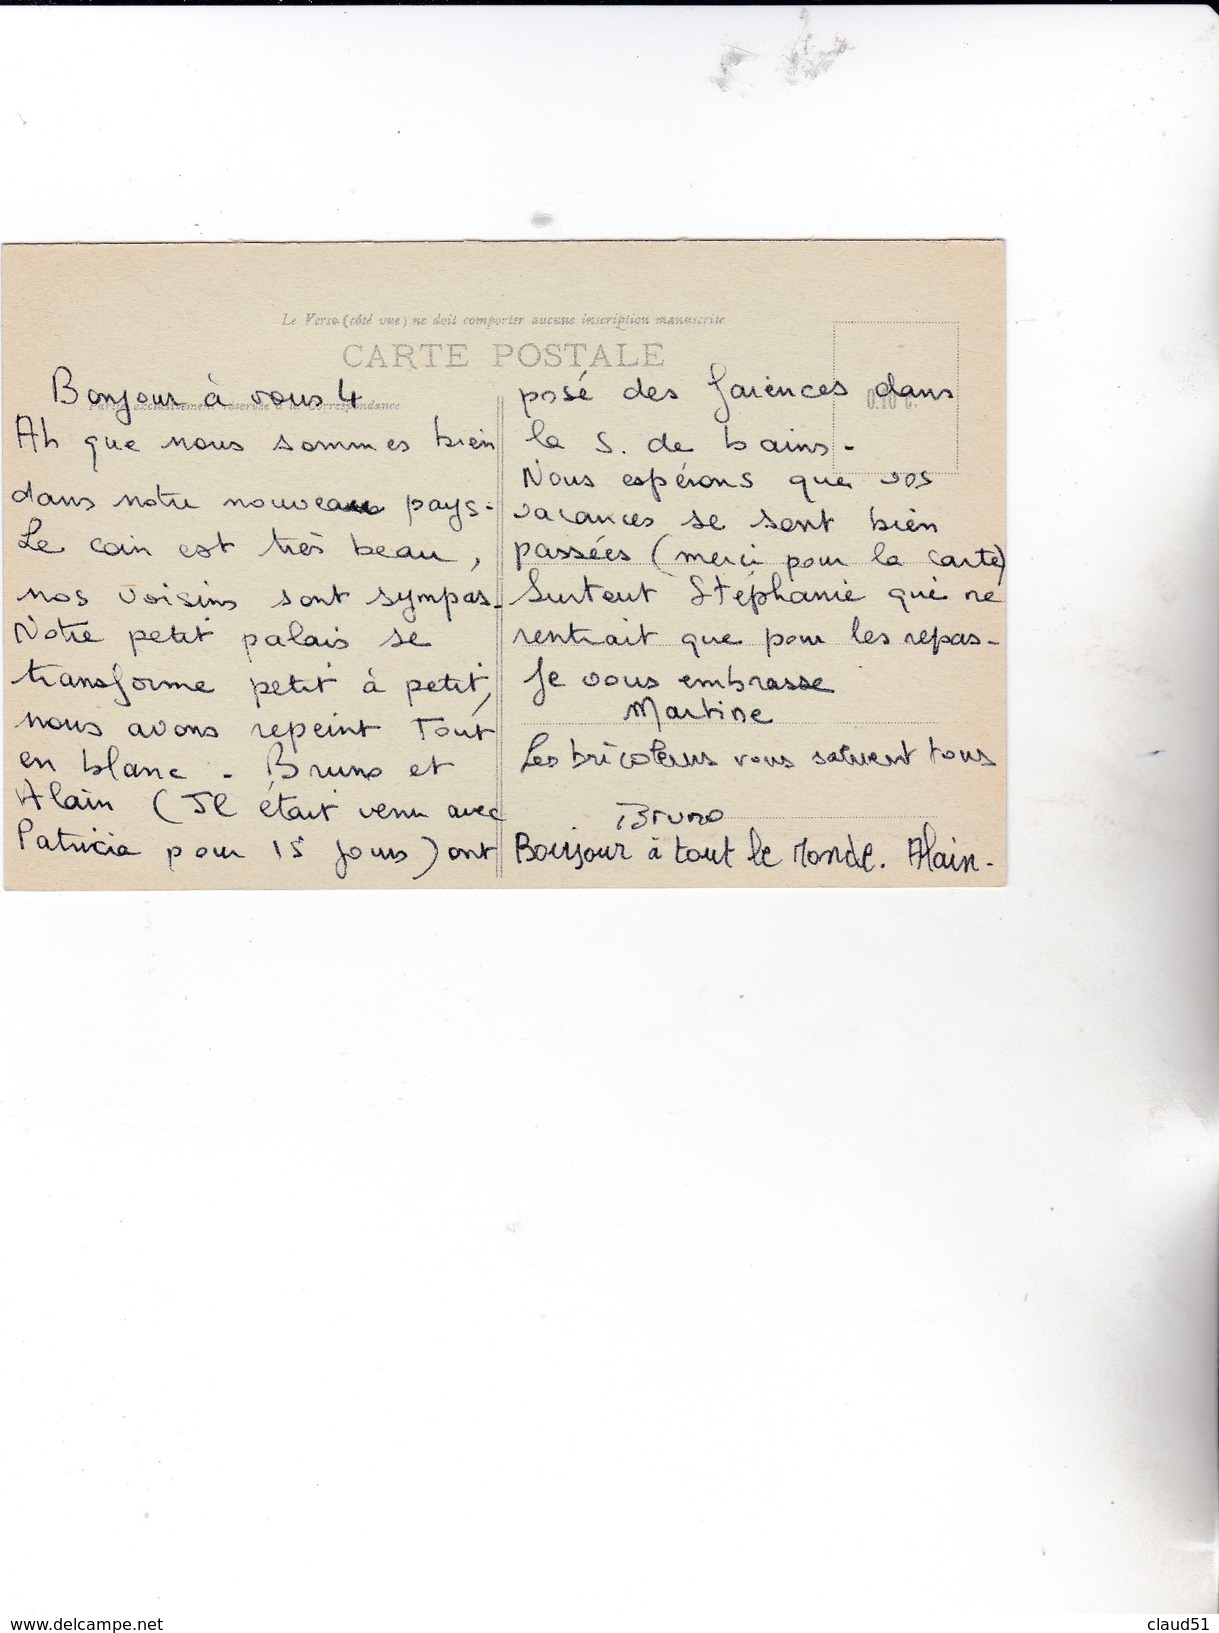 Le Verso (côté vue) ne doit comporter aucune inscription manuscrite
CARTE POSTALE
Partie exclusivement réservée à la correspondance
0.10 c.
Bonjour à vous 4
Ah que nous sommes bien
dans notre nouveau pays.
Le coin est très beau,
nos voisins sont sympas.
Notre petit palais se
transforme petit à petit,
nous avons repeint Tout
en blanc - Bruno et
Alain (Il était venu avec
Patricia pour 15 jours) ont
posé des faïences dans
la S. de bains -
Nous espérons que vos
vacances se sont bien
passées (merci pour la carte)
Surtout Stéphanie qui ne
rentrait que pour les repas -
Je vous embrasse
Martine
Les bricoleurs vous saluent tous
Bruno
Bonjour à tout le Monde. Alain -
delcampe.net
claud51